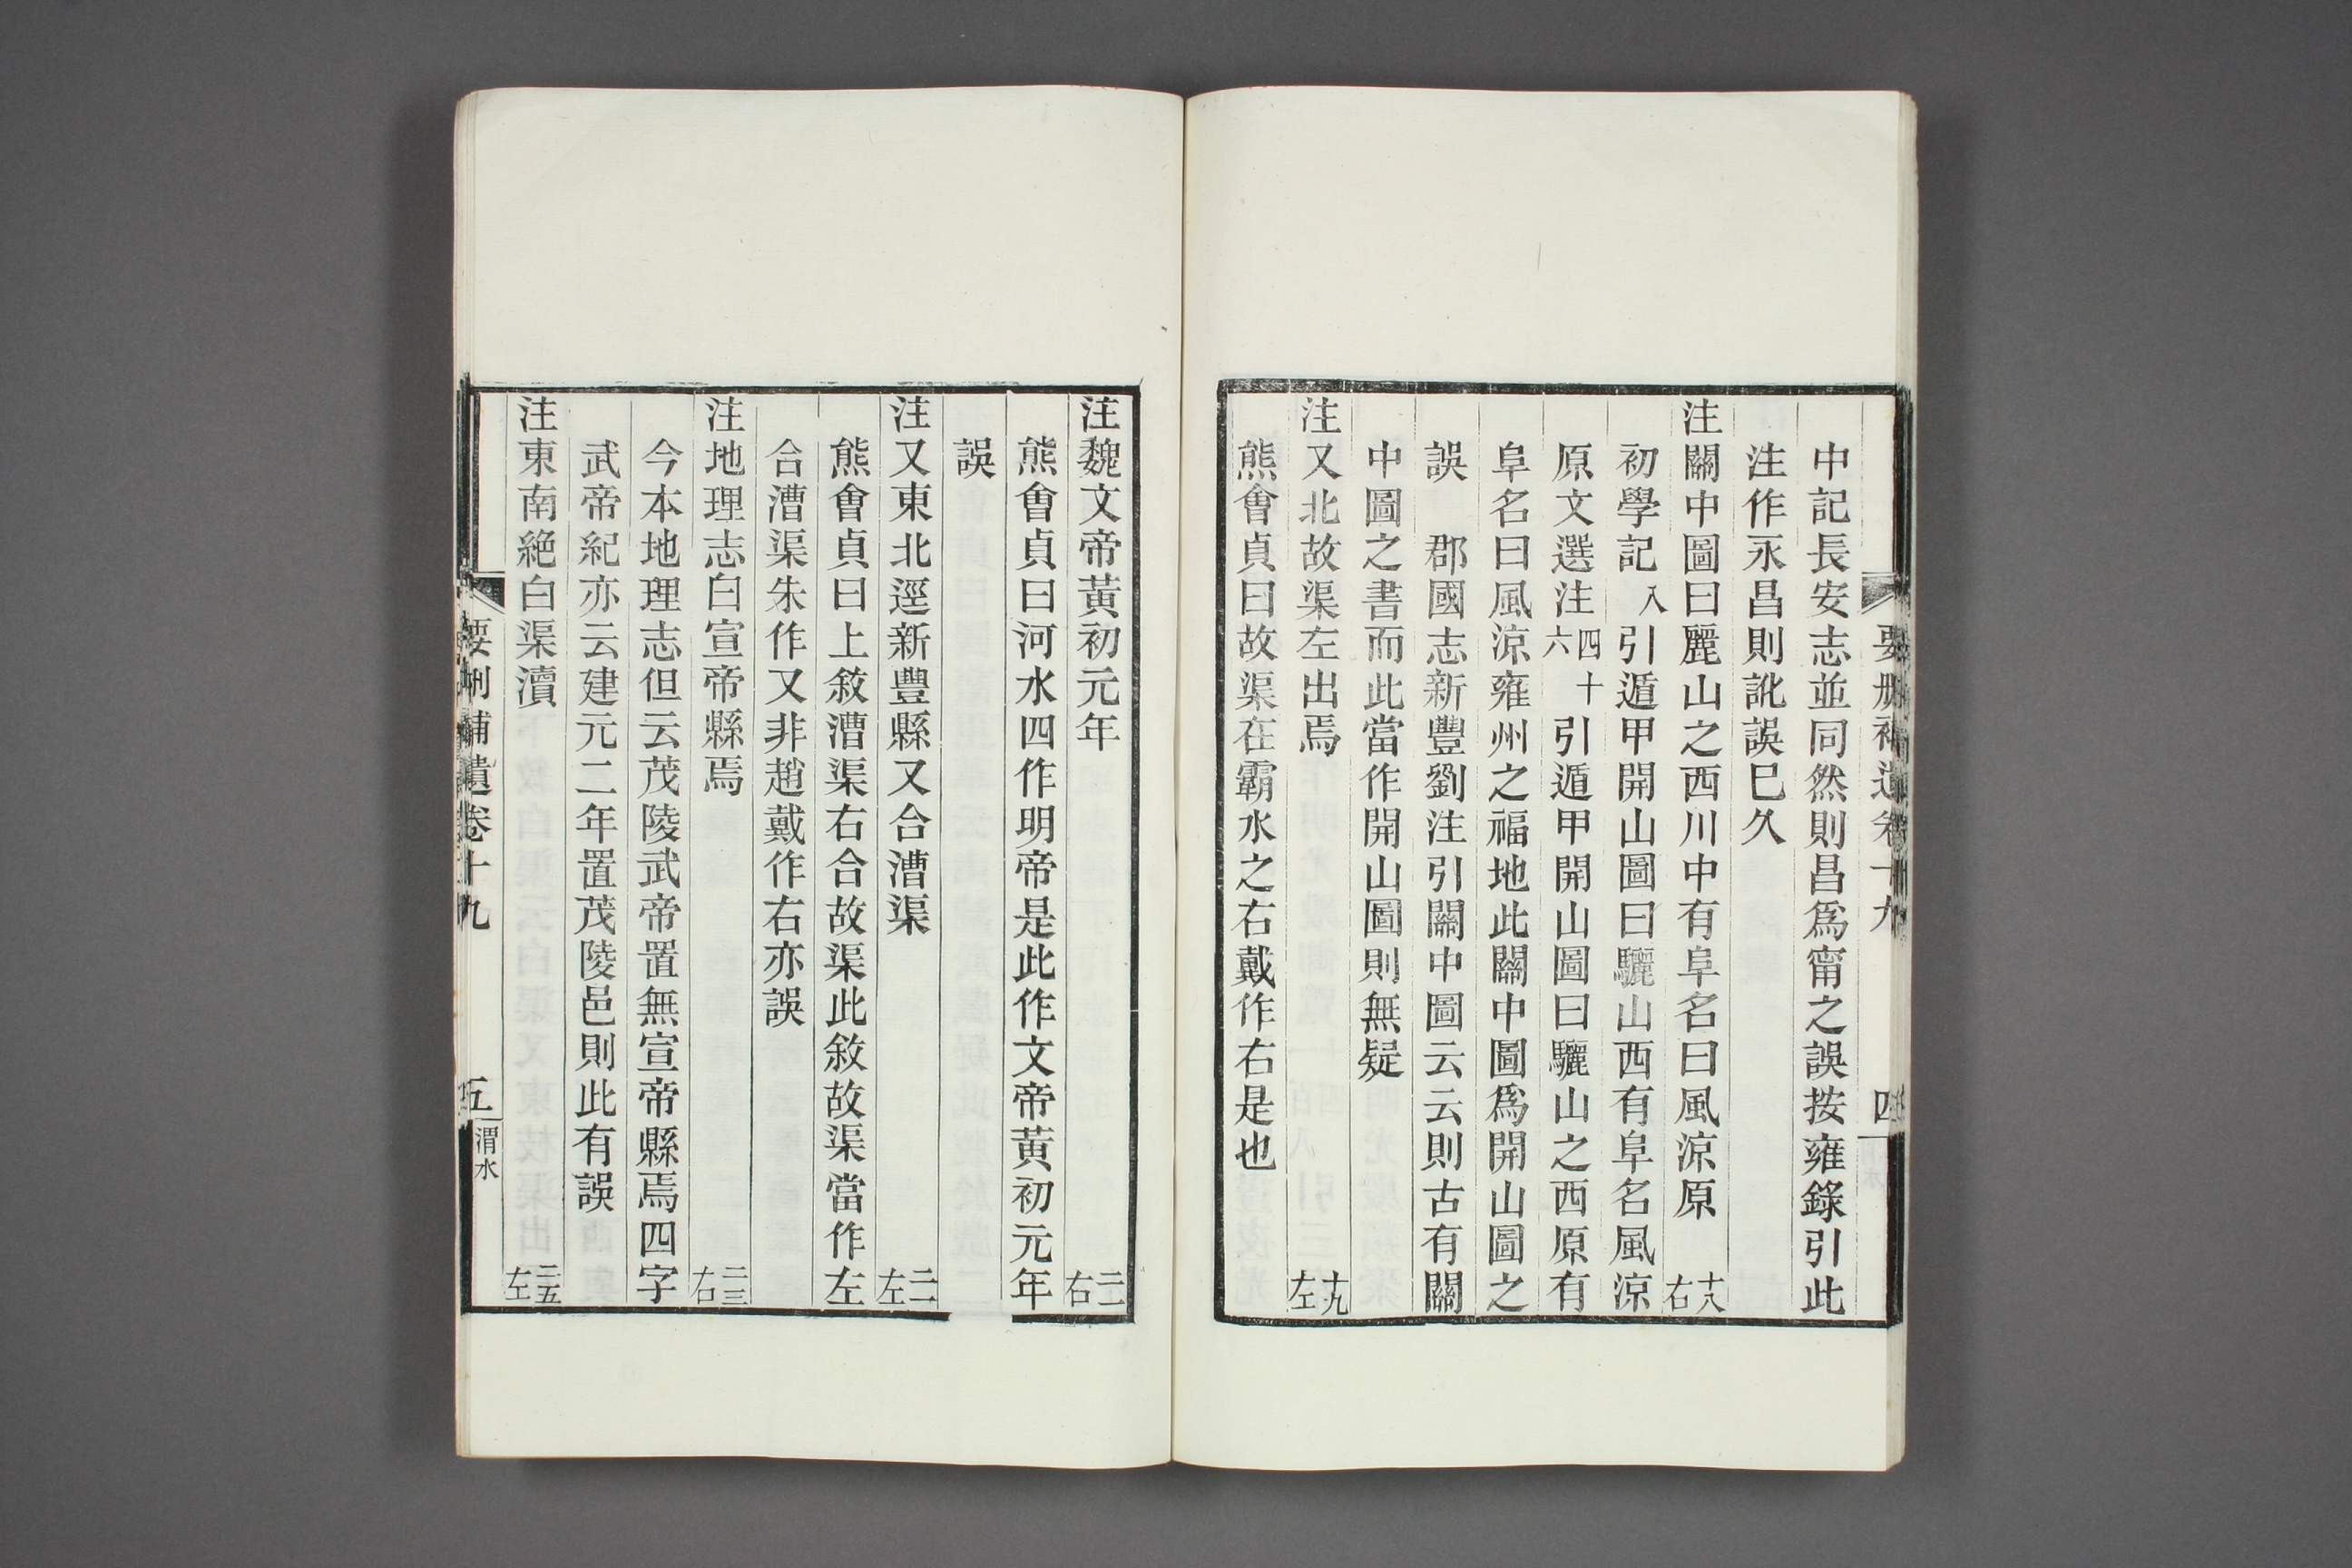 要刪補遺卷十九
四
中記長安志並同然則昌爲甯之誤按雍錄引此
注作永昌則訛誤已久
注關中圖曰麗山之西川中有阜名曰風涼原 十八右
初學記八引遁甲開山圖曰驪山西有阜名風涼
原文選注四十六引遁甲開山圖曰驪山之西原有
阜名曰風涼雍州之福地此關中圖爲開山圖之
誤 郡國志新豐劉注引關中圖云云則古有關
中圖之書而此當作開山圖則無疑
注又北故渠左出焉 十九左
熊會貞曰故渠在霸水之右戴作右是也
注魏文帝黃初元年 二一右
熊會貞曰河水四作明帝是此作文帝黃初元年
誤
注又東北逕新豐縣又合漕渠 二二左
熊會貞曰上敘漕渠右合故渠此敘故渠當作左
合漕渠朱作又非趙戴作右亦誤
注地理志曰宣帝縣焉 二三右
今本地理志但云茂陵武帝置無宣帝縣焉四字
武帝紀亦云建元二年置茂陵邑則此有誤
注東南絕白渠瀆 二五左
要刪補遺卷十九
五
渭水